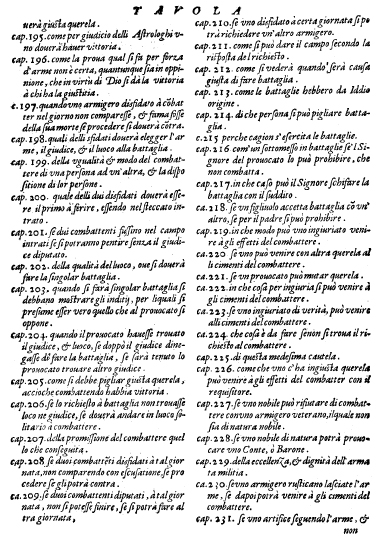 TAVOLA
uerà giusta querela.
cap. 195. come per giudicio delli Astrologhi v-
no douerà hauer vittoria.
cap. 196. come la proua qual si fu per forza
d'arme non è certa, quantunque sia in oppi-
nione, che in virtù di Dio si dà la vittoria
à chi ha la giustitia.
c. 197. quando vno armigero disfidato à cōbat
ter nel giorno non comparesse, & fama fusse
della sua morte se procedere si douerà cōtra.
cap. 198. quali delli disfidati douerà elegger l'ar
me, il giudice, & il luogo alla battaglia.
cap. 199. della vgualità & modo del combat-
tere di vna persona ad vn'altra, & la dispo
sitione di lor persone.
cap. 200. quale delli dui disfidati douerà esse-
re il primo à ferire, essendo nel steccato in-
trato.
cap. 201. se dui combattenti fussino nel campo
intrati se si potranno pentire senza il giudi-
ce diputato.
cap. 202. della qualità del luoco, oue si douerà
far la singolar battaglia.
cap. 203. quando si farà singolar battaglia si
debbano mostrare gli inditij, per liquali si
presume esser vero quello che al prouocato si
oppone.
cap. 204. quando il prouocato hauesse trouato
il giudice, & luoco, se doppò il giudice dine-
gasse dō far la battaglia, se sarà tenuto lo
prouocato trouare altro giudice.
cap. 205. come si debbe pigliar giusta querela,
accioche combattendo habbia vittoria.
cap. 206. se lo richiesto à battaglia non trouasse
loco ne giudice, se douerà andare in luoco so-
litario à combattere.
cap. 207. della promissione del combattere quel
lo che conseguita.
cap. 208. se dui combattēti disfidati à tal gior
nata, non comparendo con escusatione, se pro
cedere se gli potrà contra.
ca. 209. se duoi combattenti diputati, à tal gior
nata, non si potesse finire, se si potrà fare al
tra giornata,
cap. 210. se vno disfidato à certa giornata si po
trà richiedere vn'altro armigero.
cap. 211. come si può dare il campo secondo la
risposta del richiesto.
cap. 212. come si vederà quando sarà causa
giusta di fare battaglia.
cap. 213. come le battaglie hebbero da Iddio
origine.
cap. 214. di che persona si può pigliare batta-
glia.
c. 215 perche cagion s'esercita le battaglie.
c. 216. com'un sottomesso in battaglia se'l Si-
gnore del prouocato lo può prohibire, che
non combatta.
cap. 217. in che caso può il Signore schifare la
battaglia con il suddito.
ca. 218. se vn figliuolo accetta battaglia cō vn'
altro, se per il padre si può prohibire.
cap. 219. in che modo può vno ingiuriato veni-
re à gli effetti del combattere.
ca. 220 se vno può venire con altra querela al
li cimenti del combattere.
ca. 221. se vn prouocato può mutar querela.
ca. 222. in che cosa per ingiuria si può venire à
gli cimenti del combattere.
ca. 223. se vno ingiuriato di verità, può venire
alli cimenti del combattere.
ca. 224. che cosa è da fare se non si troua il ri-
chiesto al combattere.
cap. 225. di questa medesima cautela.
cap. 226. come che vno c'ha ingiusta querela
può venire à gli effetti del combatter con il
requisitore.
cap. 227. se vno nobile può rifiutare di combat-
tere con vno armigero veterano, il quale non
sia di natura nobile.
cap. 228. se vno nobile di natura potrà prouo-
care vno Conte, ò Barone.
cap. 229. della eccellenza, & dignità dell'arma
ta militia.
ca. 230. se vno armigero rusticano lasciate l'ar
me, se dapoi potrà venire à gli cimenti del
combattere.
cap. 231. se vno artifice seguendo l'arme, &
non